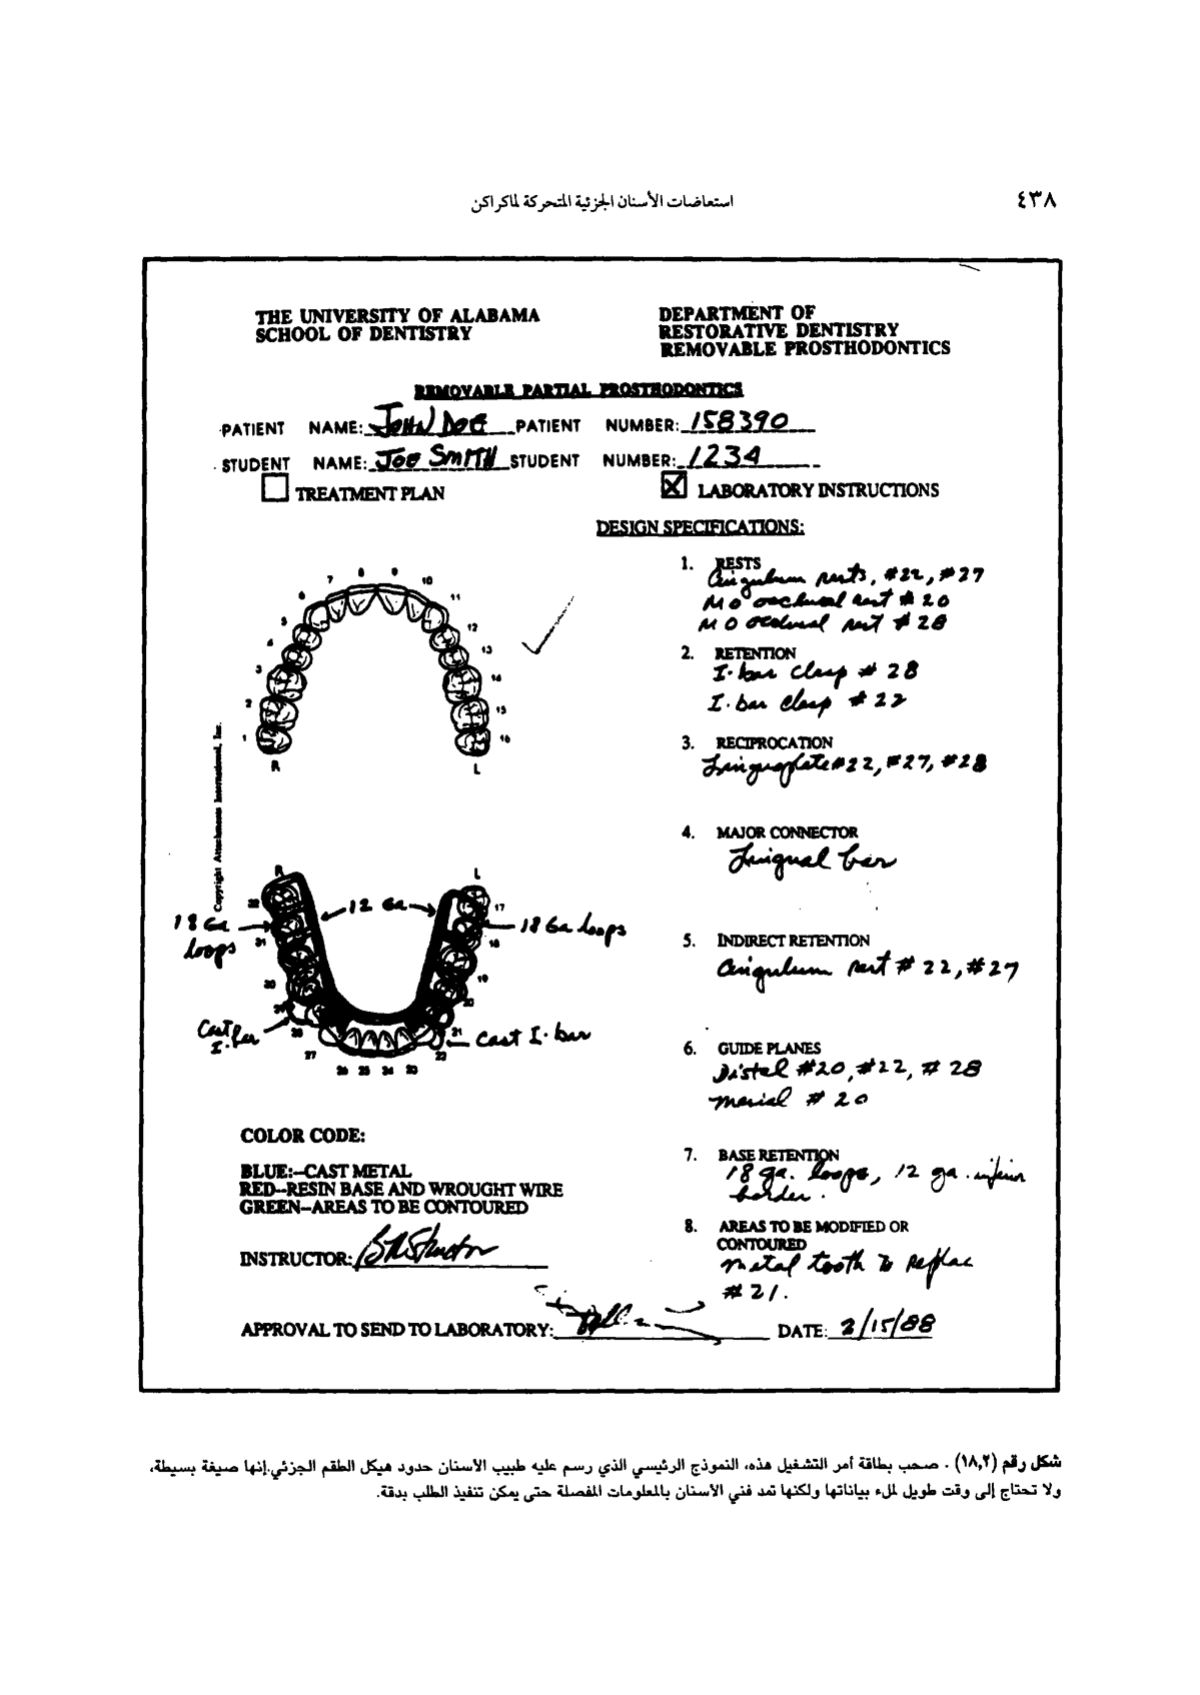 استعاضات الأسنان الجزئية المتحركة لماكراكن
٤٣٨
THE UNIVERSITY OF ALABAMA
SCHOOL OF DENTISTRY
DEPARTMENT OF
RESTORATIVE DENTISTRY
REMOVABLE PROSTHODONTICS
REMOVABLE PARTIAL PROSTHODONTICS
PATIENT NAME: JOHN DOE PATIENT NUMBER: 158390
STUDENT NAME: JOE SMITH STUDENT NUMBER: 1234
TREATMENT PLAN
LABORATORY INSTRUCTIONS
DESIGN SPECIFICATIONS:
1. RESTS
Cingulum rests, #22, #27
MO occlusal rest # 20
MO occlusal rest # 28
2. RETENTION
I-bar clasp # 28
I-bar clasp # 22
3. RECIPROCATION
Linguoplate #22, #27, #28
4. MAJOR CONNECTOR
Lingual bar
5. INDIRECT RETENTION
Cingulum rest # 22, #27
6. GUIDE PLANES
Distal #20, #22, # 28
mesial # 20
7. BASE RETENTION
18 ga. loops, 12 ga.
border.
8. AREAS TO BE MODIFIED OR
CONTOURED
metal tooth to replac
# 21.
7 8 9 10
6 11
5 12
4 13
3 14
2 15
1 16
R L
Copyright Attachments International, Inc.
R L
12 Ga
32 17
18 Ga
loops
18 Ga loops
31 18
30 19
29 20
28 21
27 22
26 25 24 23
Cast
I-bar
Cast I-bar
COLOR CODE:
BLUE:--CAST METAL
RED--RESIN BASE AND WROUGHT WIRE
GREEN--AREAS TO BE CONTOURED
INSTRUCTOR:
APPROVAL TO SEND TO LABORATORY:
DATE: 2/15/88
شكل رقم (١٨,٢) . صحب بطاقة أمر التشغيل هذه، النموذج الرئيسي الذي رسم عليه طبيب الأسنان حدود هيكل الطقم الجزئي.إنها صيغة بسيطة،
ولا تحتاج إلى وقت طويل لملء بياناتها ولكنها تمد فني الأسنان بالمعلومات المفصلة حتى يمكن تنفيذ الطلب بدقة.